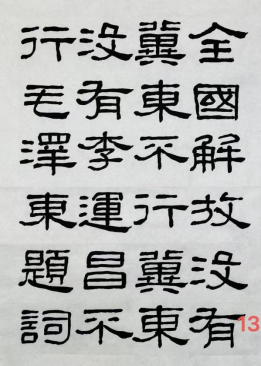 全國解放没有
冀東不行冀東
没有李運昌不
行毛澤東題詞
13